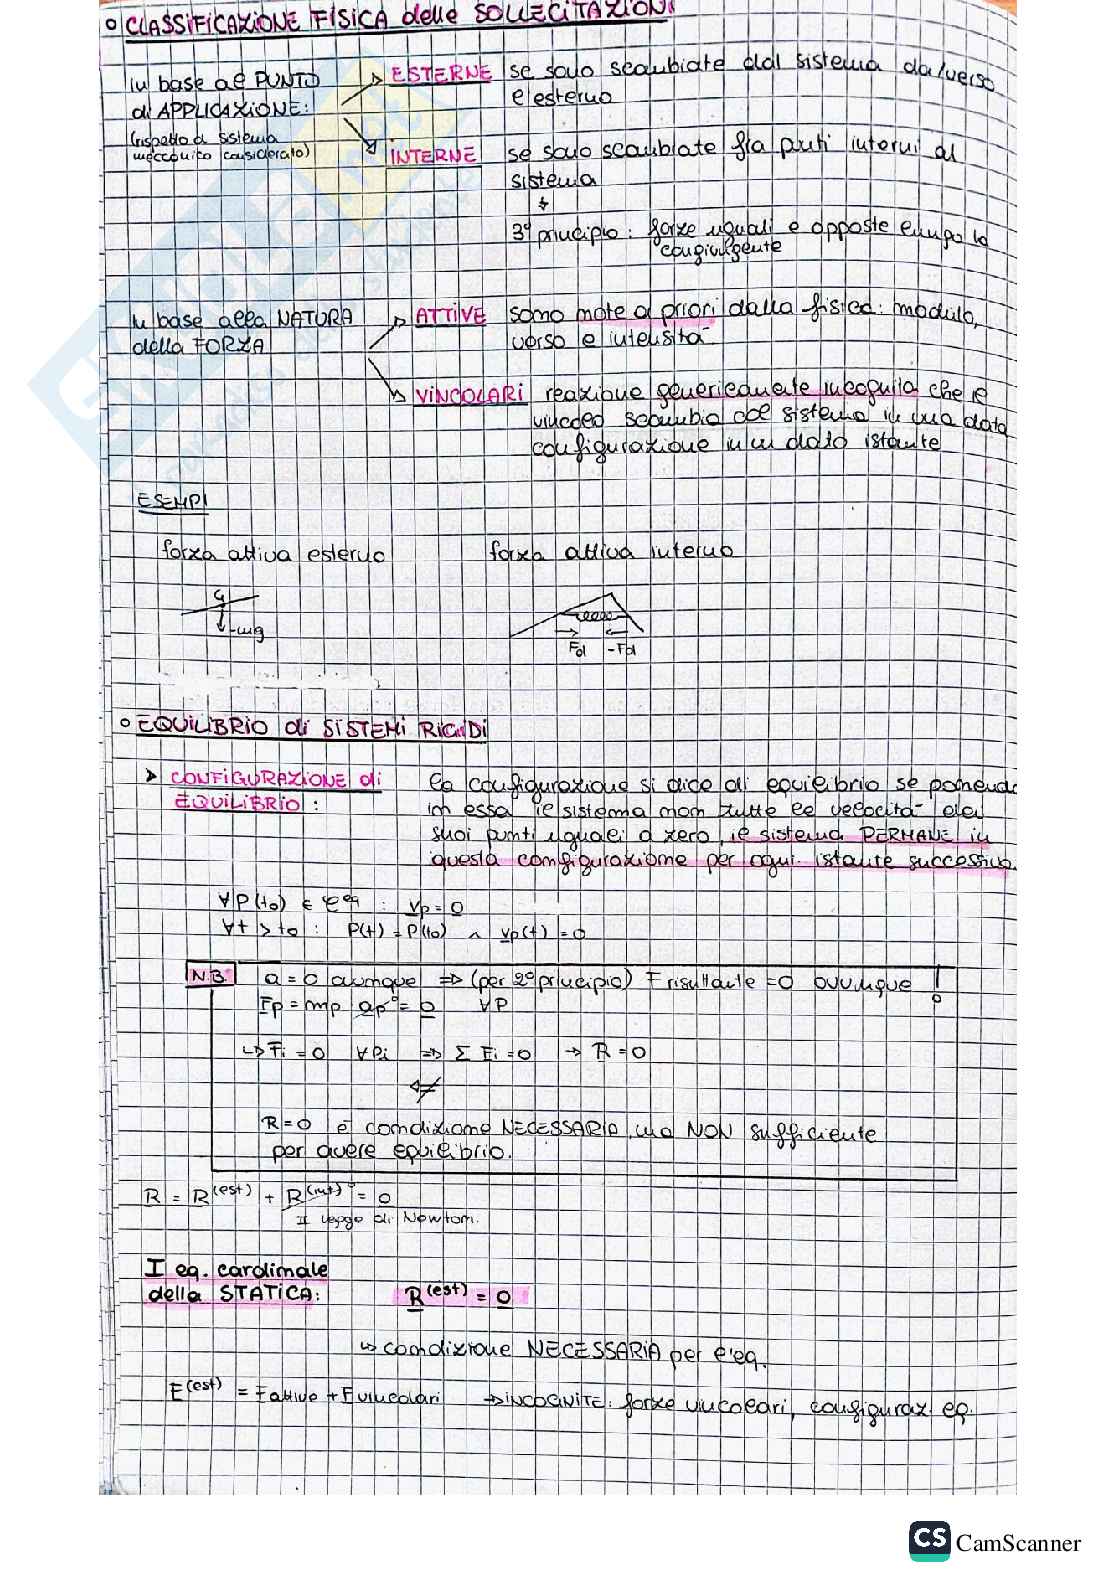 ° CLASSIFICAZIONE FISICA delle SOLLECITAZIONI
In base al PUNTO
di APPLICAZIONE:
(rispetto al sistema
meccanico considerato)
ESTERNE se sono scambiate dal sistema da/verso
l'esterno
INTERNE se sono scambiate fra punti interni al
sistema
↓
3° principio: forze uguali e opposte lungo la
congiungente
In base alla NATURA
della FORZA
ATTIVE sono note a priori dalla fisica: modulo,
verso e intensità
VINCOLARI reazione genericamente incognita che il
vincolo scambia col sistema in una data
configurazione in un dato istante
ESEMPI
forza attiva esterna forza attiva interna
G
-mg
Fd -Fd
° EQUILIBRIO di SISTEMI RIGIDI
> CONFIGURAZIONE di
EQUILIBRIO:
la configurazione si dice di equilibrio se ponendo
in essa il sistema con tutte le velocità dei
suoi punti uguali a zero, il sistema PERMANE in
questa configurazione per ogni istante successivo.
∀P(t0) ∈ C eq : vp = 0
∀t > t0 : P(t) = P(t0) ∧ vp(t) = 0
N.B. a = 0 ovunque ⇒ (per 2° principio) F risultante = 0 ovunque !
Fp = mp ap = 0 ∀P
↳ Fi = 0 ∀Pi ⇒ Σ Fi = 0 → R = 0
⇍
R = 0 è condizione NECESSARIA ma NON sufficiente
per avere equilibrio.
R = R(est) + R(int) = 0
III legge di Newton.
I eq. cardinale
della STATICA: R(est) = 0
↳ condizione NECESSARIA per l'eq.
F(est) = F attive + F vincolari → INCOGNITE: forze vincolari, configuraz. eq.
CS CamScanner